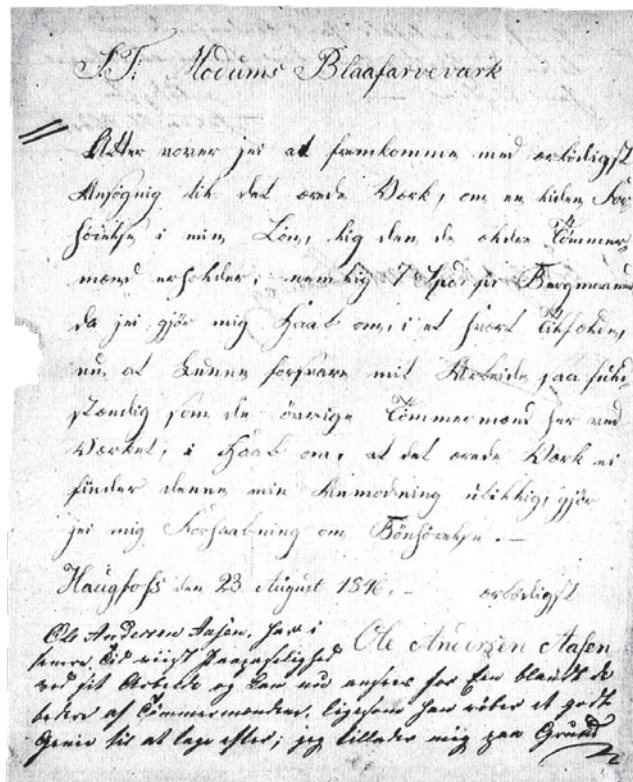 S.T. Modums Blaafarveværk
Atter vover jei at fremkomme med ærbödigst
Ansögnig til det ærede Værk, om en liden For
höielse i min Lön, lig den de ældre Tömmer,
mænd erholder, nemlig 7 pr Bergmaaned
da jei gjör mig Haab om, i et hvert Tilfælde,
nu at kunne forsvare mit Arbeide saa fuld
stændig som de övrige Tömmermænd her ved
Værket; i Haab om, at det ærede Værk ei
finder denne min Anmodning ubillig, gjör
jei mig Forhaabning om Bönhörelse. —
Haugfoss den 23 August 1846. - ærbödigst
Ole Andersen Aasen
Ole Andersen Aasen, har i
senere Tid viist Paapasselighed
ved sit Arbeide og kan nu ansees for Een blandt de
bedre af Tömmermændene, ligesom han röber et godt
Genie til at tage efter; jeg tillader mig paa Grund